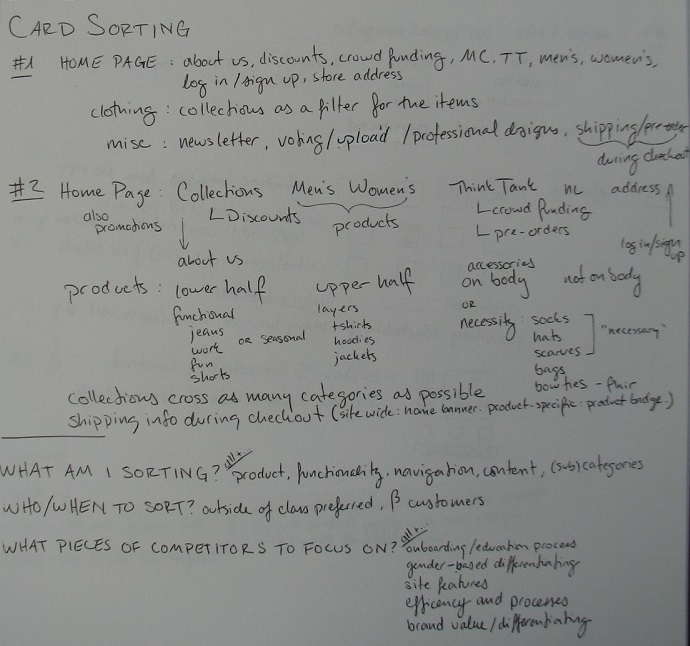 CARD SORTING
#1 HOME PAGE : about us, discounts, crowd funding, MC, TT, men's, women's,
log in/sign up, store address
clothing : collections as a filter for the items
misc : newsletter, voting/upload/professional designs, shipping/
during checkout
#2 Home Page : Collections Men's Women's Think Tank NL address
also promotions
Discounts
products
crowd funding
pre-orders
log in/sign up
about us
products : lower half upper half
accessories
on body not on body
functional
jeans
work
fun
shorts
or seasonal
layers
t-shirts
hoodies
jackets
or
necessity : socks
hats
scarves
"necessary"
bags
bowties - flair
collections cross as many categories as possible
shipping info during checkout (site wide : home banner. product-specific : product badge.)
WHAT AM I SORTING? product, functionality, navigation, content, (sub)categories
WHO/WHEN TO SORT? outside of class preferred, β customers
WHAT PIECES OF COMPETITORS TO FOCUS ON? onboarding/education process
gender-based differentiating
site features
efficiency and processes
brand value/differentiating